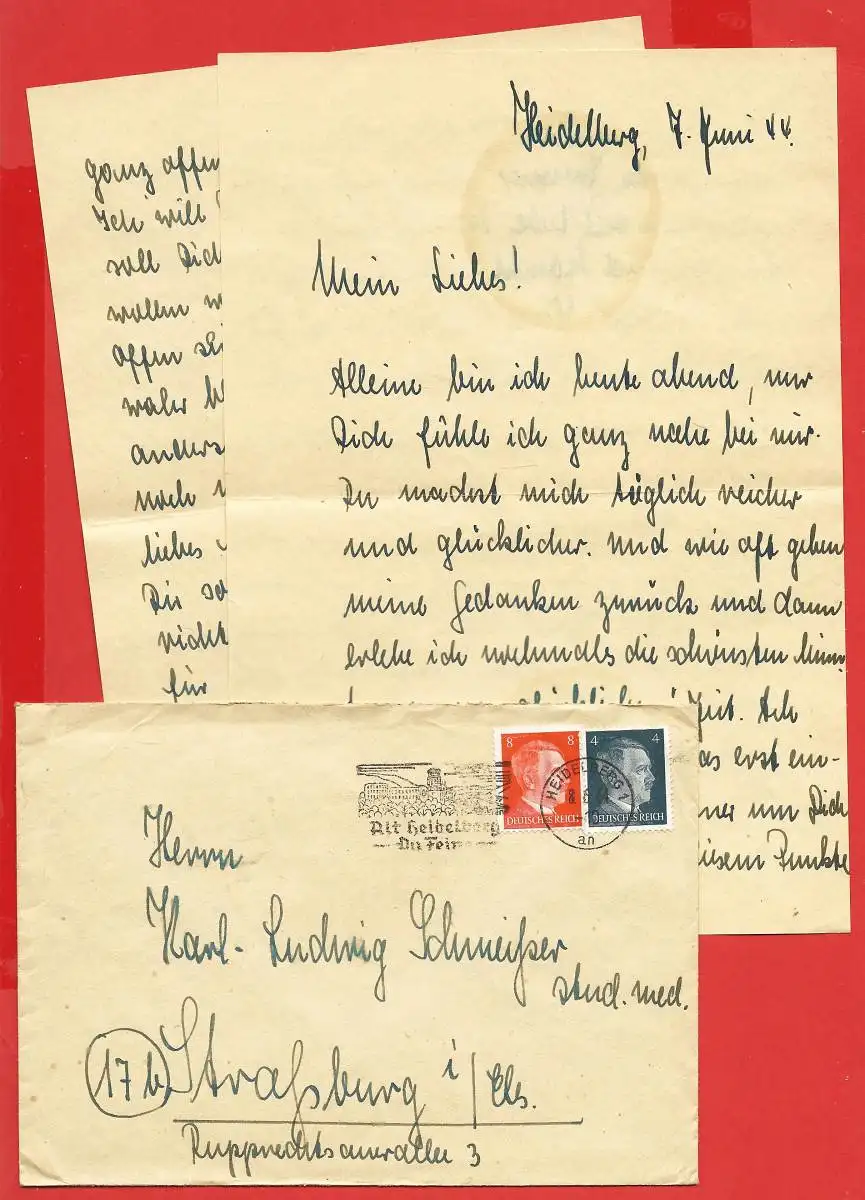 ganz offen
Ich will
soll Dich
wollen
offen
wahr
anders
noch
liebes
Du
für
Heidelberg, 7. Juni 44.
Mein Liebes!
Alleine bin ich heute abend, nur
Dich fühle ich ganz nahe bei mir.
Du machst mich täglich reicher
und glücklicher. Und wie oft gehen
meine Gedanken zurück und dann
erlebe ich nochmals die schönsten
Zeit. Ach
das erst ein-
um Dich
diesem Punkte
8 8
DEUTSCHES REICH
4 4
DEUTSCHES REICH
HEIDELBERG
8.6
an
Alt Heidelberg
Du Feine
Herrn
Karl-Ludwig Schmeißer
stud. med.
17b Straßburg i/Els.
Rupprechtsauerallee 3